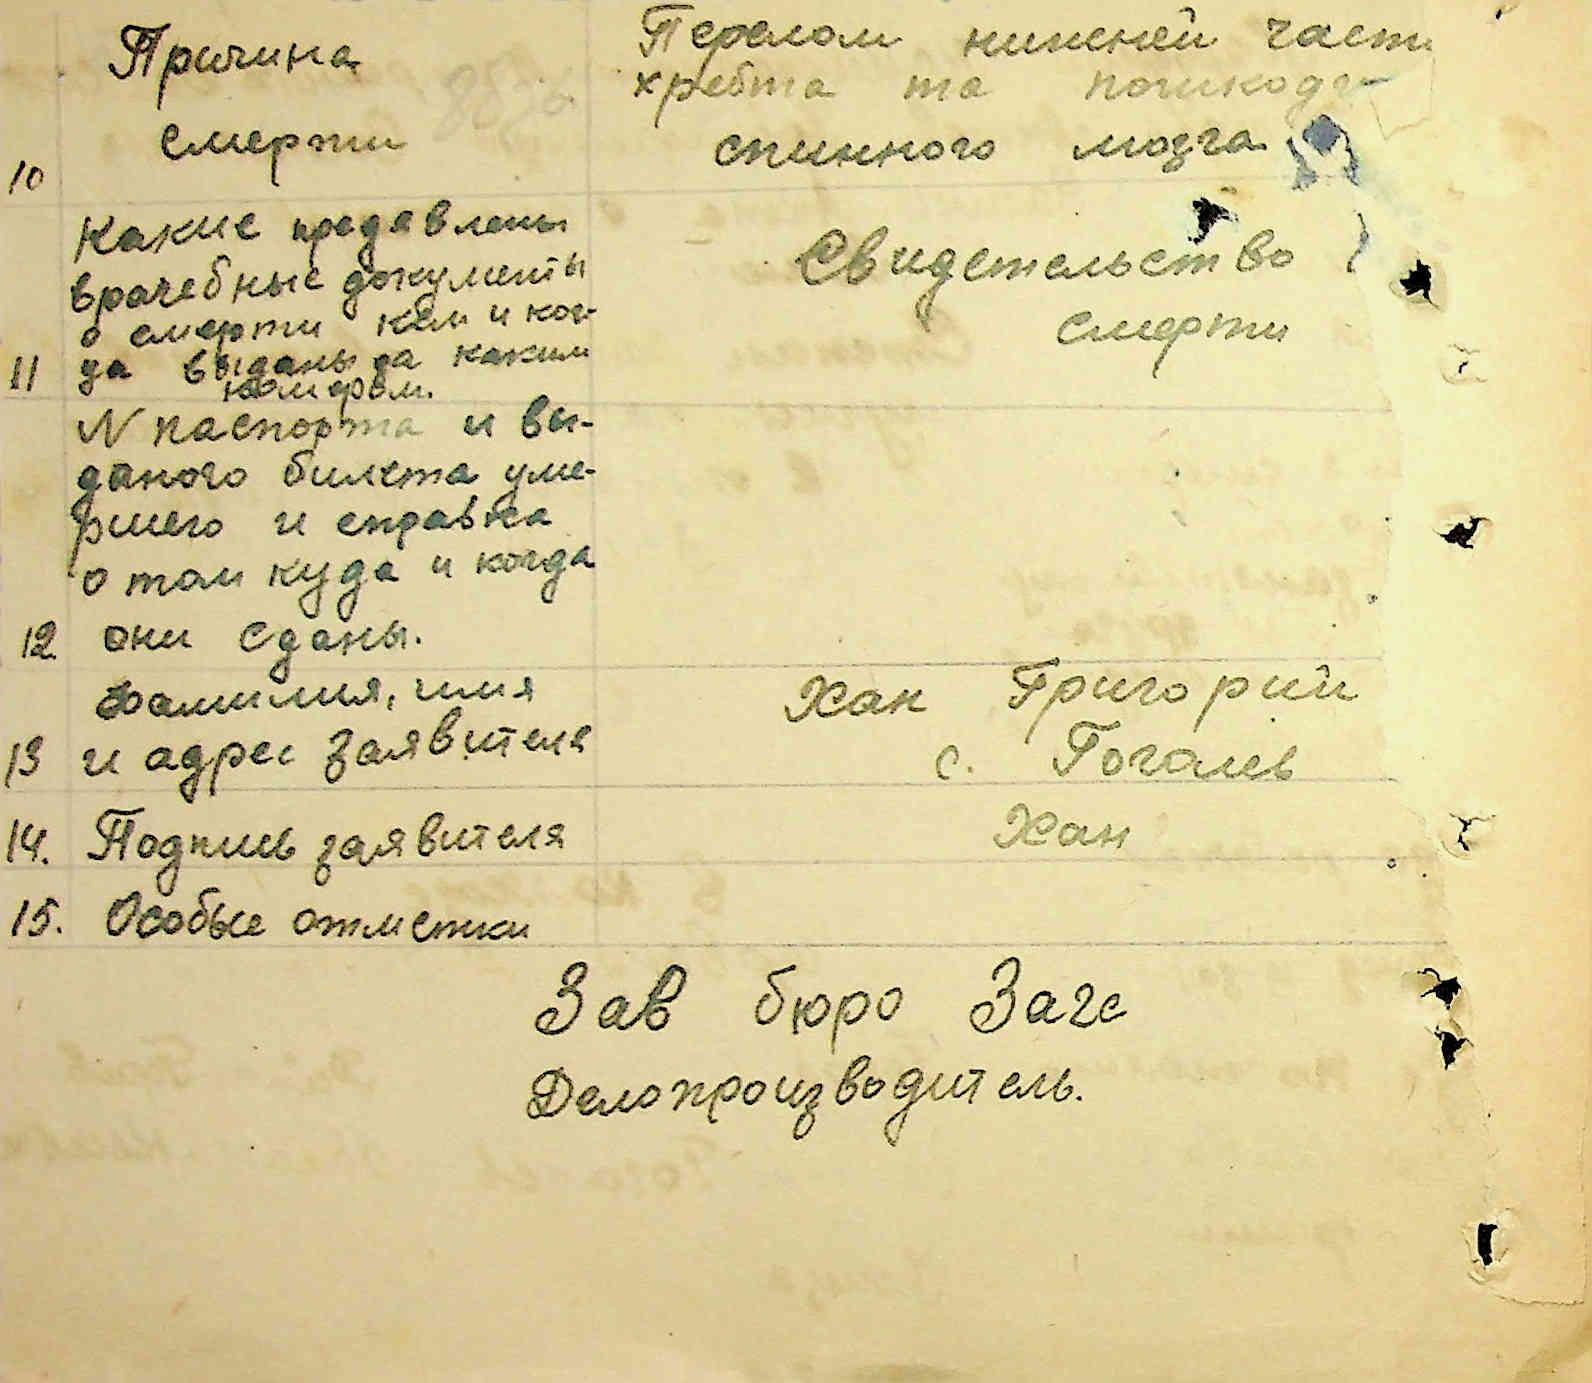 Причина
смерти
10
Перелом нижней части
хребта та
спинного мозга
Какие предявлены
врачебные документы
о смерти кем и ког-
11 да выданы за каким
номером.
Свидетельство
смерти
N паспорта и вы-
даного билета уме-
ршего и справка
о том куда и когда
12 они сданы.
Фамилия, имя
13 и адрес заявителя
Хан Григорий
с. Гоголев
14. Подпись заявителя Хан
15. Особые отметки
Зав бюро Загс
Делопроизводитель.